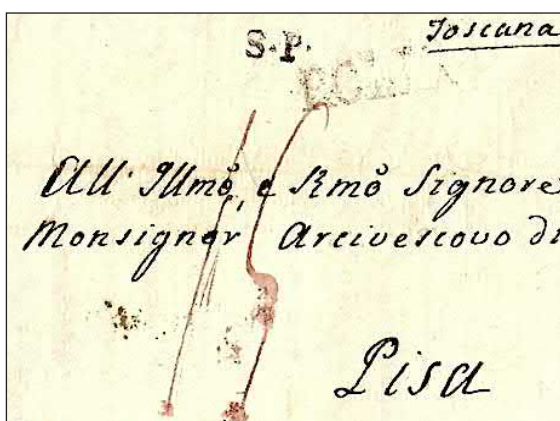 Toscana
S.P.
All' Illmo, e Rmo Signore
Monsignor Arcivescovo di
Pisa